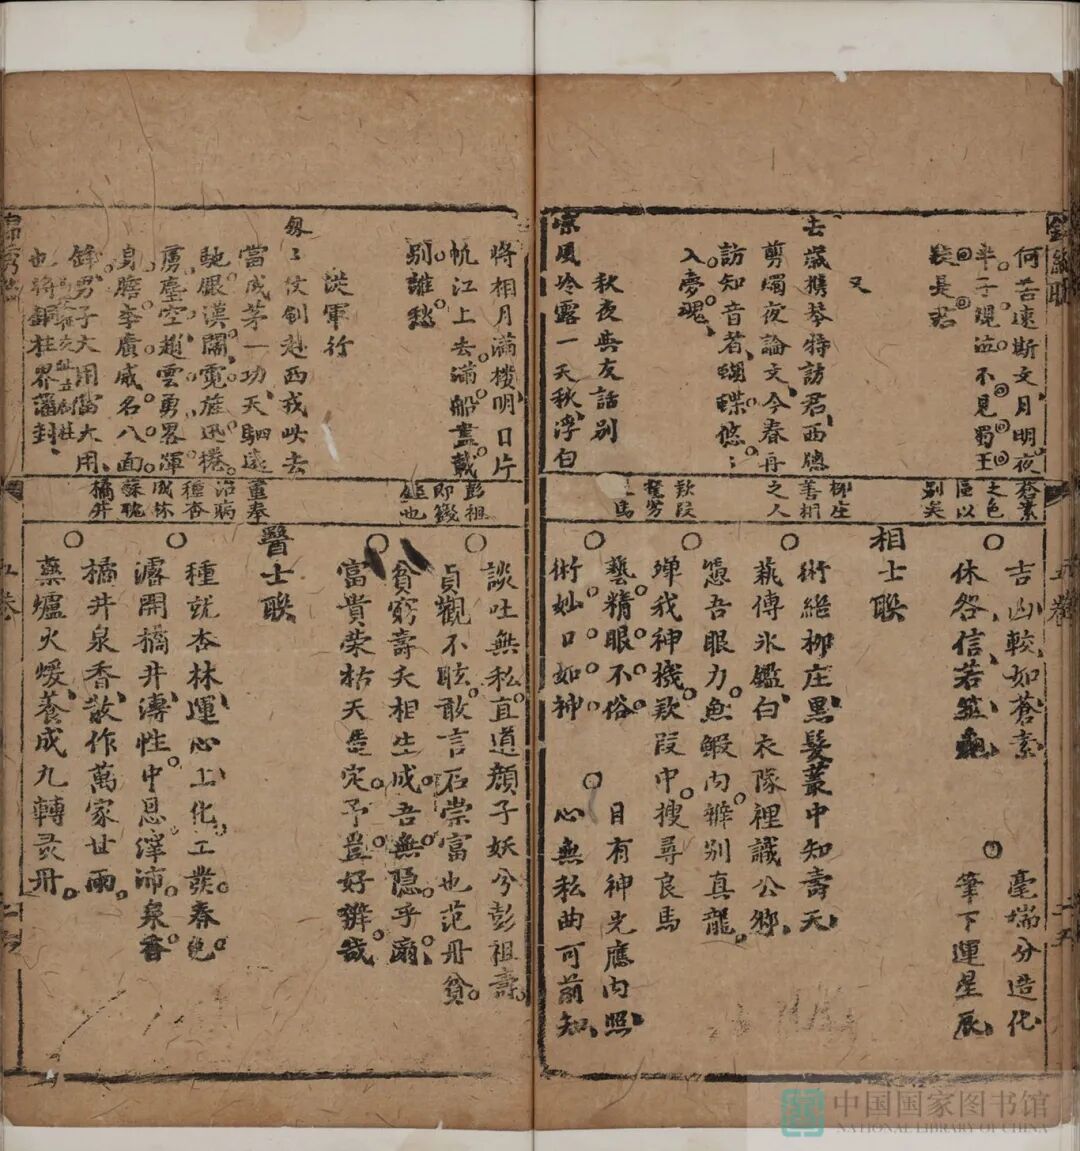 何苦遠斯文月明夜
半子規泣不見蜀王
又
去歲携琴特訪君西牕
剪燭夜論文今春再
訪知音者蝴蝶悠〻
入夢魂
秋夜與友話別
一天秋浮白
蒼素
之色
區以
別矣
柳庄
善相
之人
欵段
駑劣
馬
吉凶較如蒼素
毫端分造化
休咎信若筮龜
筆下運星辰
相士聯
術絕柳庄黑髮叢中知壽夭
藐傳氷鑑白衣隊裡識公卿
憑吾眼力魚鰕內辨别真龍
殫我神機欵段中搜尋良馬
藝精眼不俗
目有神光應內照
術妙口如神
心無私曲可前知
將相月滿樓明日片
帆江上去滿船盡載
别離愁
從軍行
劔〻仗劍赴西戎
當成茅一功天駟遠
馳嚴漢關霓旌迅捲
虜塵空趙雲勇畧渾
身膽李廣威名八面
鋒男子大用當大用
也將銅柱界藩封
彭祖
即籛
鏗也
董奉
治病
種杏
成林
蘇耽
橘井
談吐無私直道顔子妖兮彭祖壽
貞觀不眩敢言石崇富也范丹貧
貧窮壽夭相生成吾無隱乎爾
富貴榮枯天定予豈好辨哉
醫士聯
種就杏林運心上化工發春色
濬開橘井溥性中恩澤沛泉香
橘井泉香散作萬家甘雨
藥爐火煖養成九轉灵丹
五卷
中国国家图书馆
NATIONAL LIBRARY OF CHINA